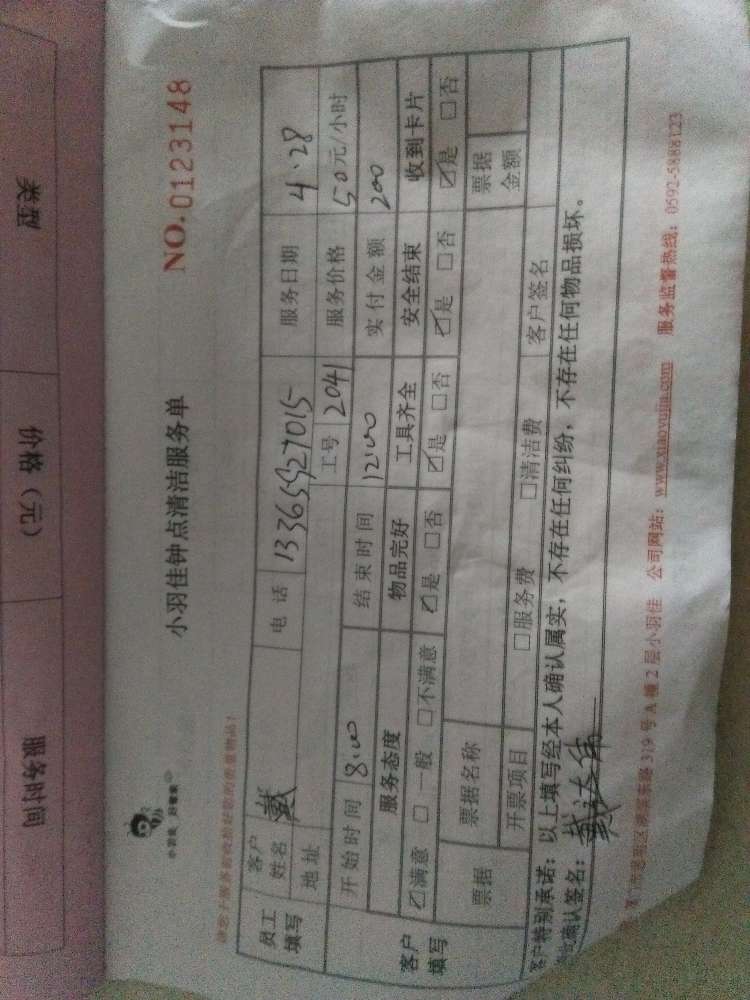 类型
价格（元）
服务时间
小羽佳钟点清洁服务单
NO.0123148
员工填写
客户姓名 戴
电话 13365927015
服务日期 4.28
地址
工号 2041
服务价格 50元/小时
开始时间 8:00
结束时间 12:00
实付金额 200
客户填写
服务态度 物品完好 工具齐全 安全结束 收到卡片
☑满意 □一般 □不满意 ☑是 □否 ☑是 □否 ☑是 □否 ☑是 □否
票据
票据名称
票据金额
开票项目 □服务费 □清洁费
客户签名
客户特别承诺：以上填写经本人确认属实，不存在任何纠纷，不存在任何物品损坏。
确认签名：
319号A幢2层小羽佳 公司网站：www.xiaoyujia.com 服务监督热线：0592-5888123